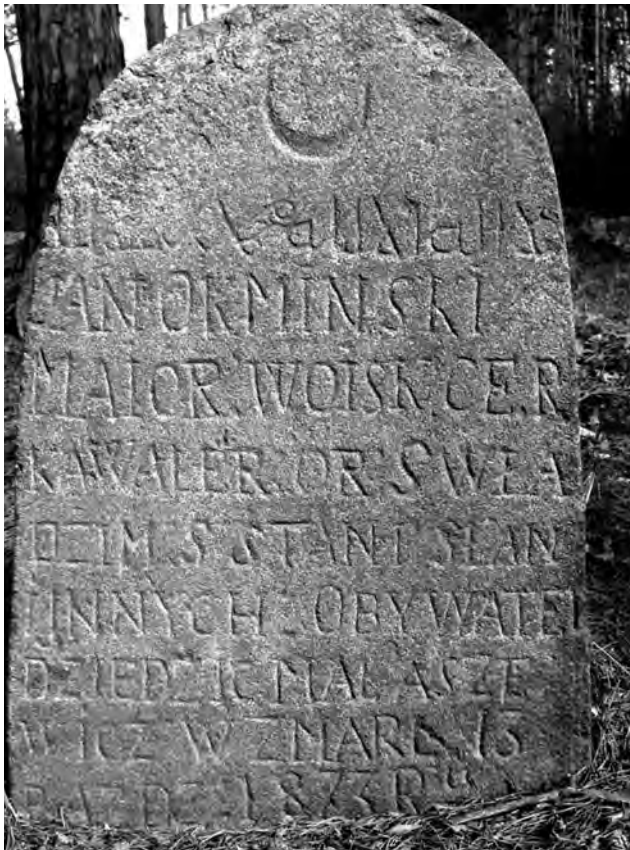 JAN OKMINSKI
MAIOR WOISK CE.R
KAWALER. OR S WŁA
DZIM S STANISŁAN
IINNYCH OBYWATEL
DZIEDZIC MAŁASZE
WICZ W ZMARŁ 13
PAZDZ 1873 R